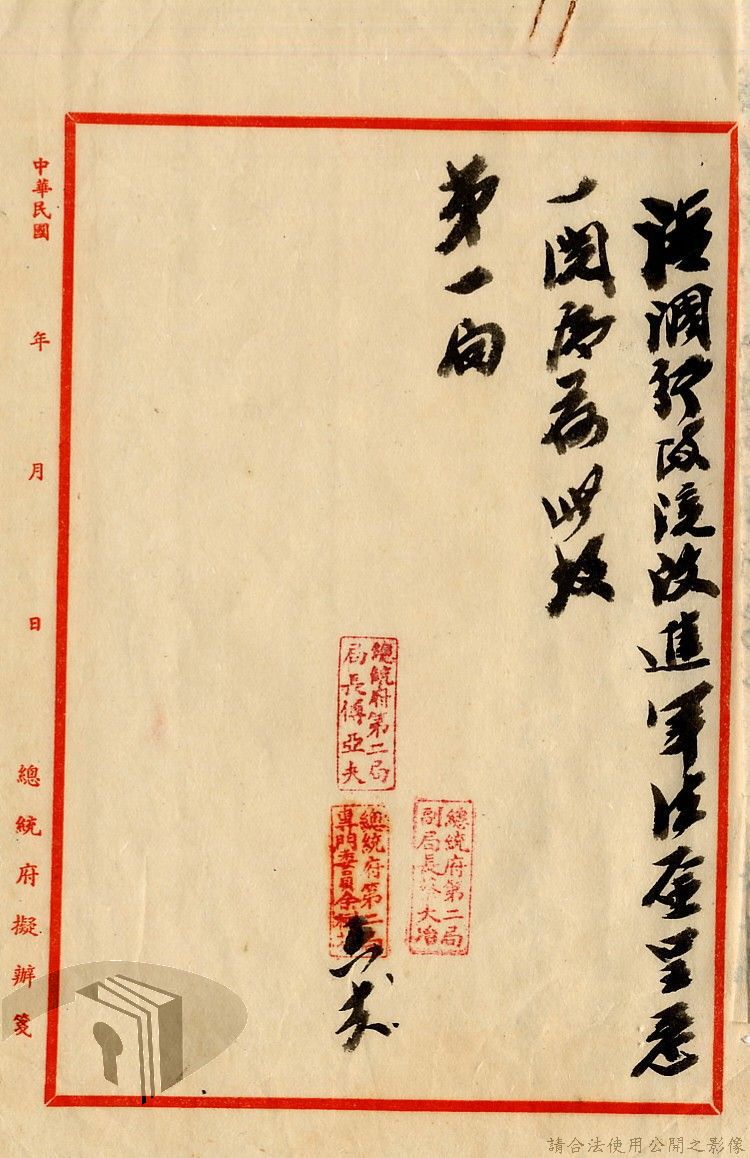 行政院改進軍法呈悉
一閱此致
第一局
總統府第二局
局長傅亞夫
總統府第二局
副局長大治
總統府第二
專門委員余
中華民國　年　月　日　總統府擬辦箋
請合法使用公開之影像